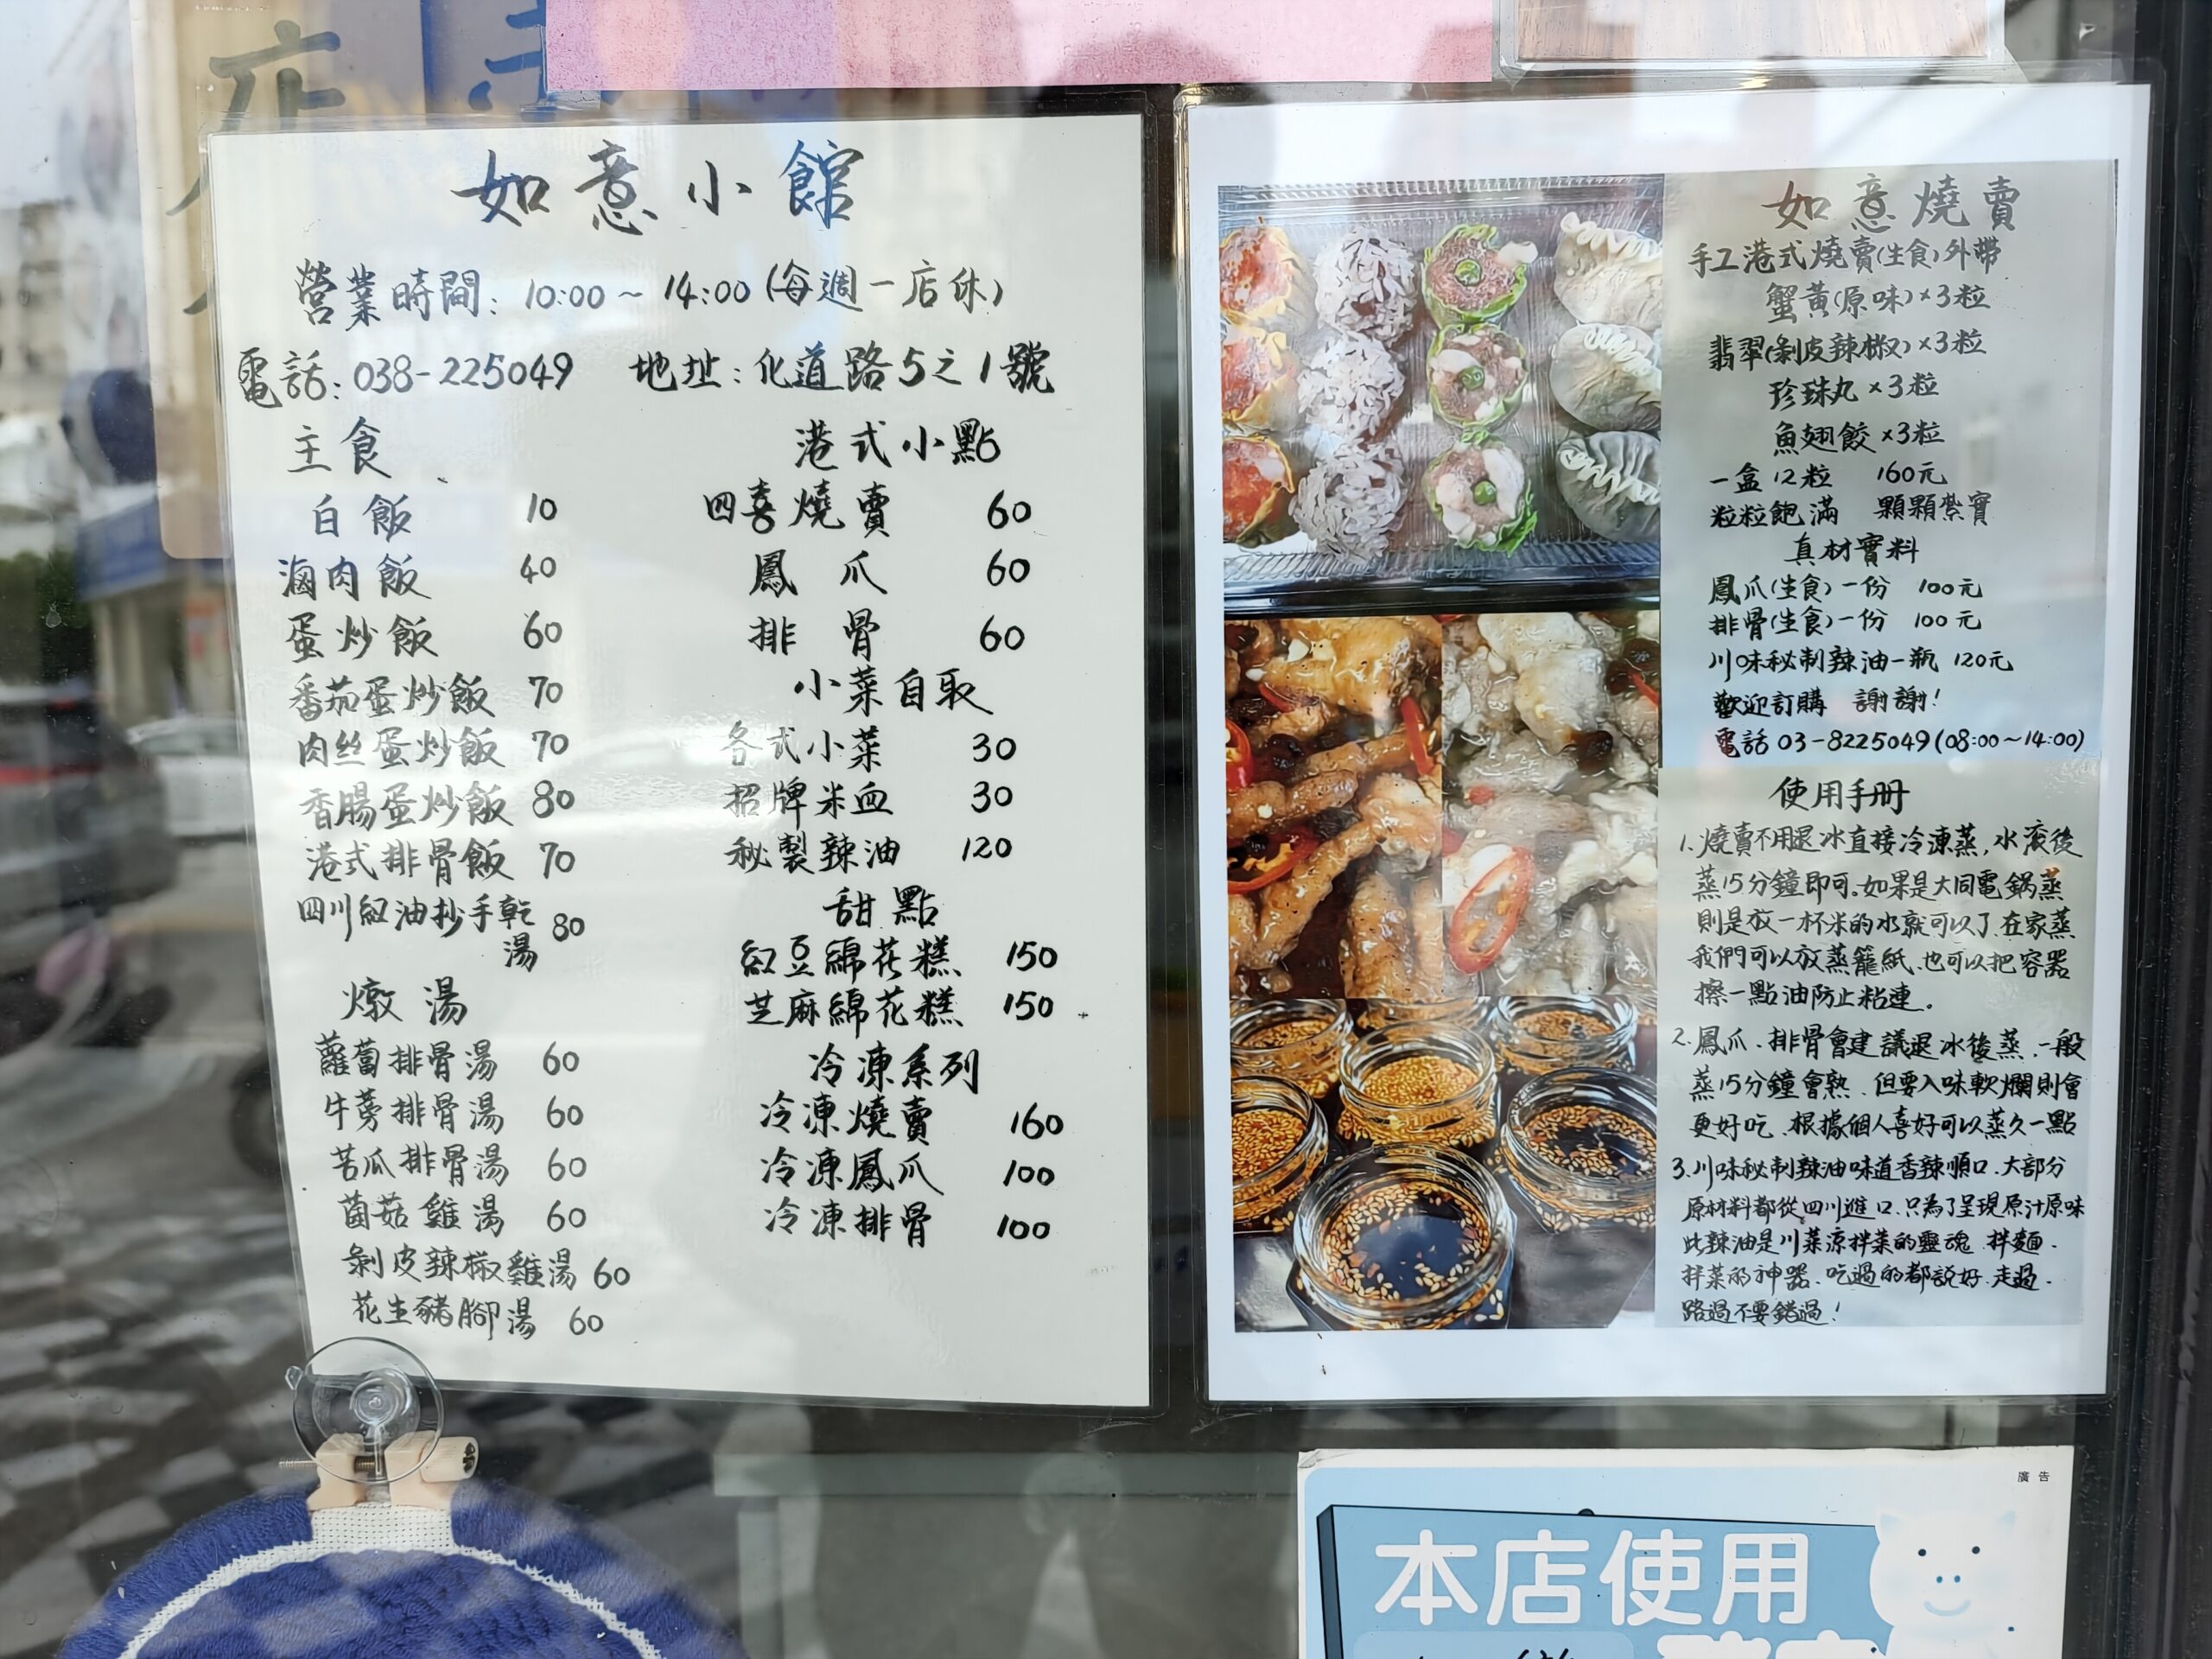 如意小館
營業時間：10:00～14:00(每週一店休)
電話：038-225049 地址：化道路5之1號
主食
白飯 10
滷肉飯 40
蛋炒飯 60
番茄蛋炒飯 70
肉丝蛋炒飯 70
香腸蛋炒飯 80
港式排骨飯 70
四川紅油抄手乾湯 80
燉湯
蘿蔔排骨湯 60
牛蒡排骨湯 60
苦瓜排骨湯 60
菌菇雞湯 60
剝皮辣椒雞湯 60
花生豬腳湯 60
港式小點
四喜燒賣 60
鳳爪 60
排骨 60
小菜自取
各式小菜 30
招牌米血 30
秘製辣油 120
甜點
紅豆綿花糕 150
芝麻綿花糕 150
冷凍系列
冷凍燒賣 160
冷凍鳳爪 100
冷凍排骨 100
如意燒賣
手工港式燒賣(生食)外帶
蟹黃(原味)×3粒
翡翠(剝皮辣椒)×3粒
珍珠丸×3粒
魚翅餃×3粒
一盒12粒 160元
粒粒飽滿 顆顆紮實
真材實料
鳳爪(生食)一份 100元
排骨(生食)一份 100元
川味秘制辣油一瓶 120元
歡迎訂購 謝謝!
電話03-8225049(08:00～14:00)
使用手册
1.燒賣不用退冰直接冷凍蒸,水滾後
蒸15分鐘即可.如果是大同電鍋蒸
則是放一杯米的水就可以了.在家蒸
我們可以放蒸籠紙.也可以把容器
擦一點油防止粘連.
2.鳳爪.排骨會建議退冰後蒸.一般
蒸15分鐘會熟.但要入味軟爛則會
更好吃.根據個人喜好可以蒸久一點
3.川味秘制辣油味道香辣順口.大部分
原材料都從四川進口.只為了呈現原汁原味
此辣油是川菜涼拌菜的靈魂.拌麵.
拌菜的神器.吃過的都說好.走過.
路過不要錯過!
廣告
本店使用